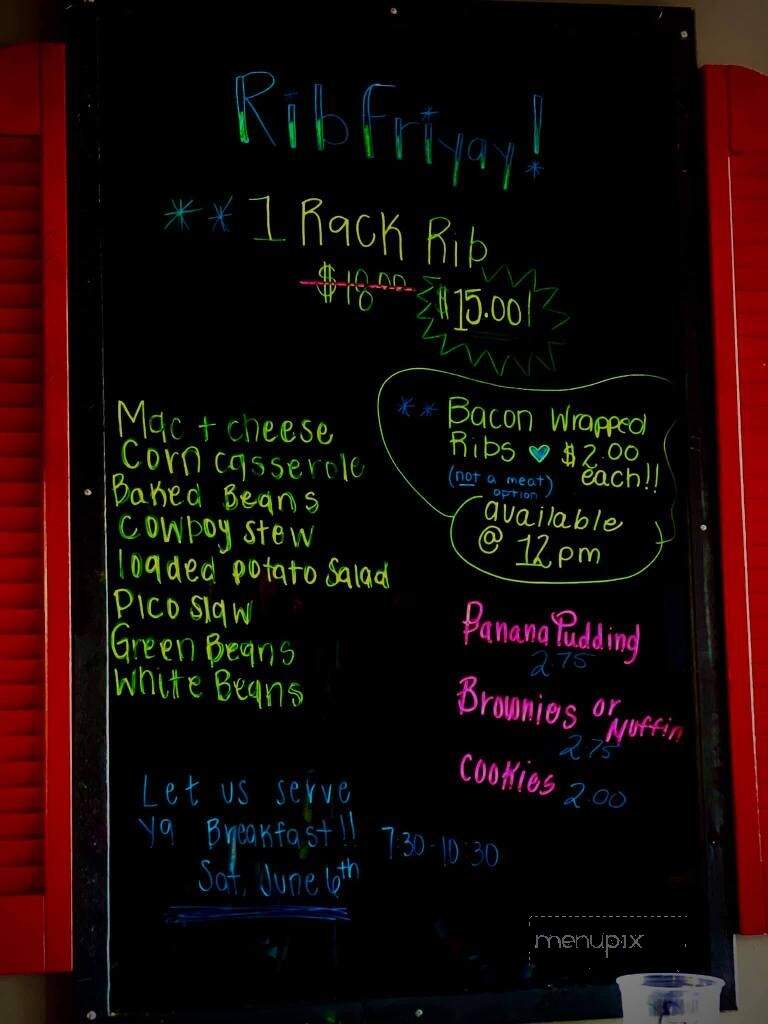 RibFriyay!
** 1 Rack Rib
$18.00 $15.00!
Mac + cheese
Corn casserole
Baked Beans
Cowboy stew
loaded potato Salad
Pico Slaw
Green Beans
White Beans
** Bacon Wrapped
Ribs ♥ $2.00
each!!
(not a meat)
option
available
@ 12pm
Banana Pudding
2.75
Brownies or
Muffin
2.75
Cookies 2.00
Let us serve
ya Breakfast!! 7:30-10:30
Sat. June 6th
menupix